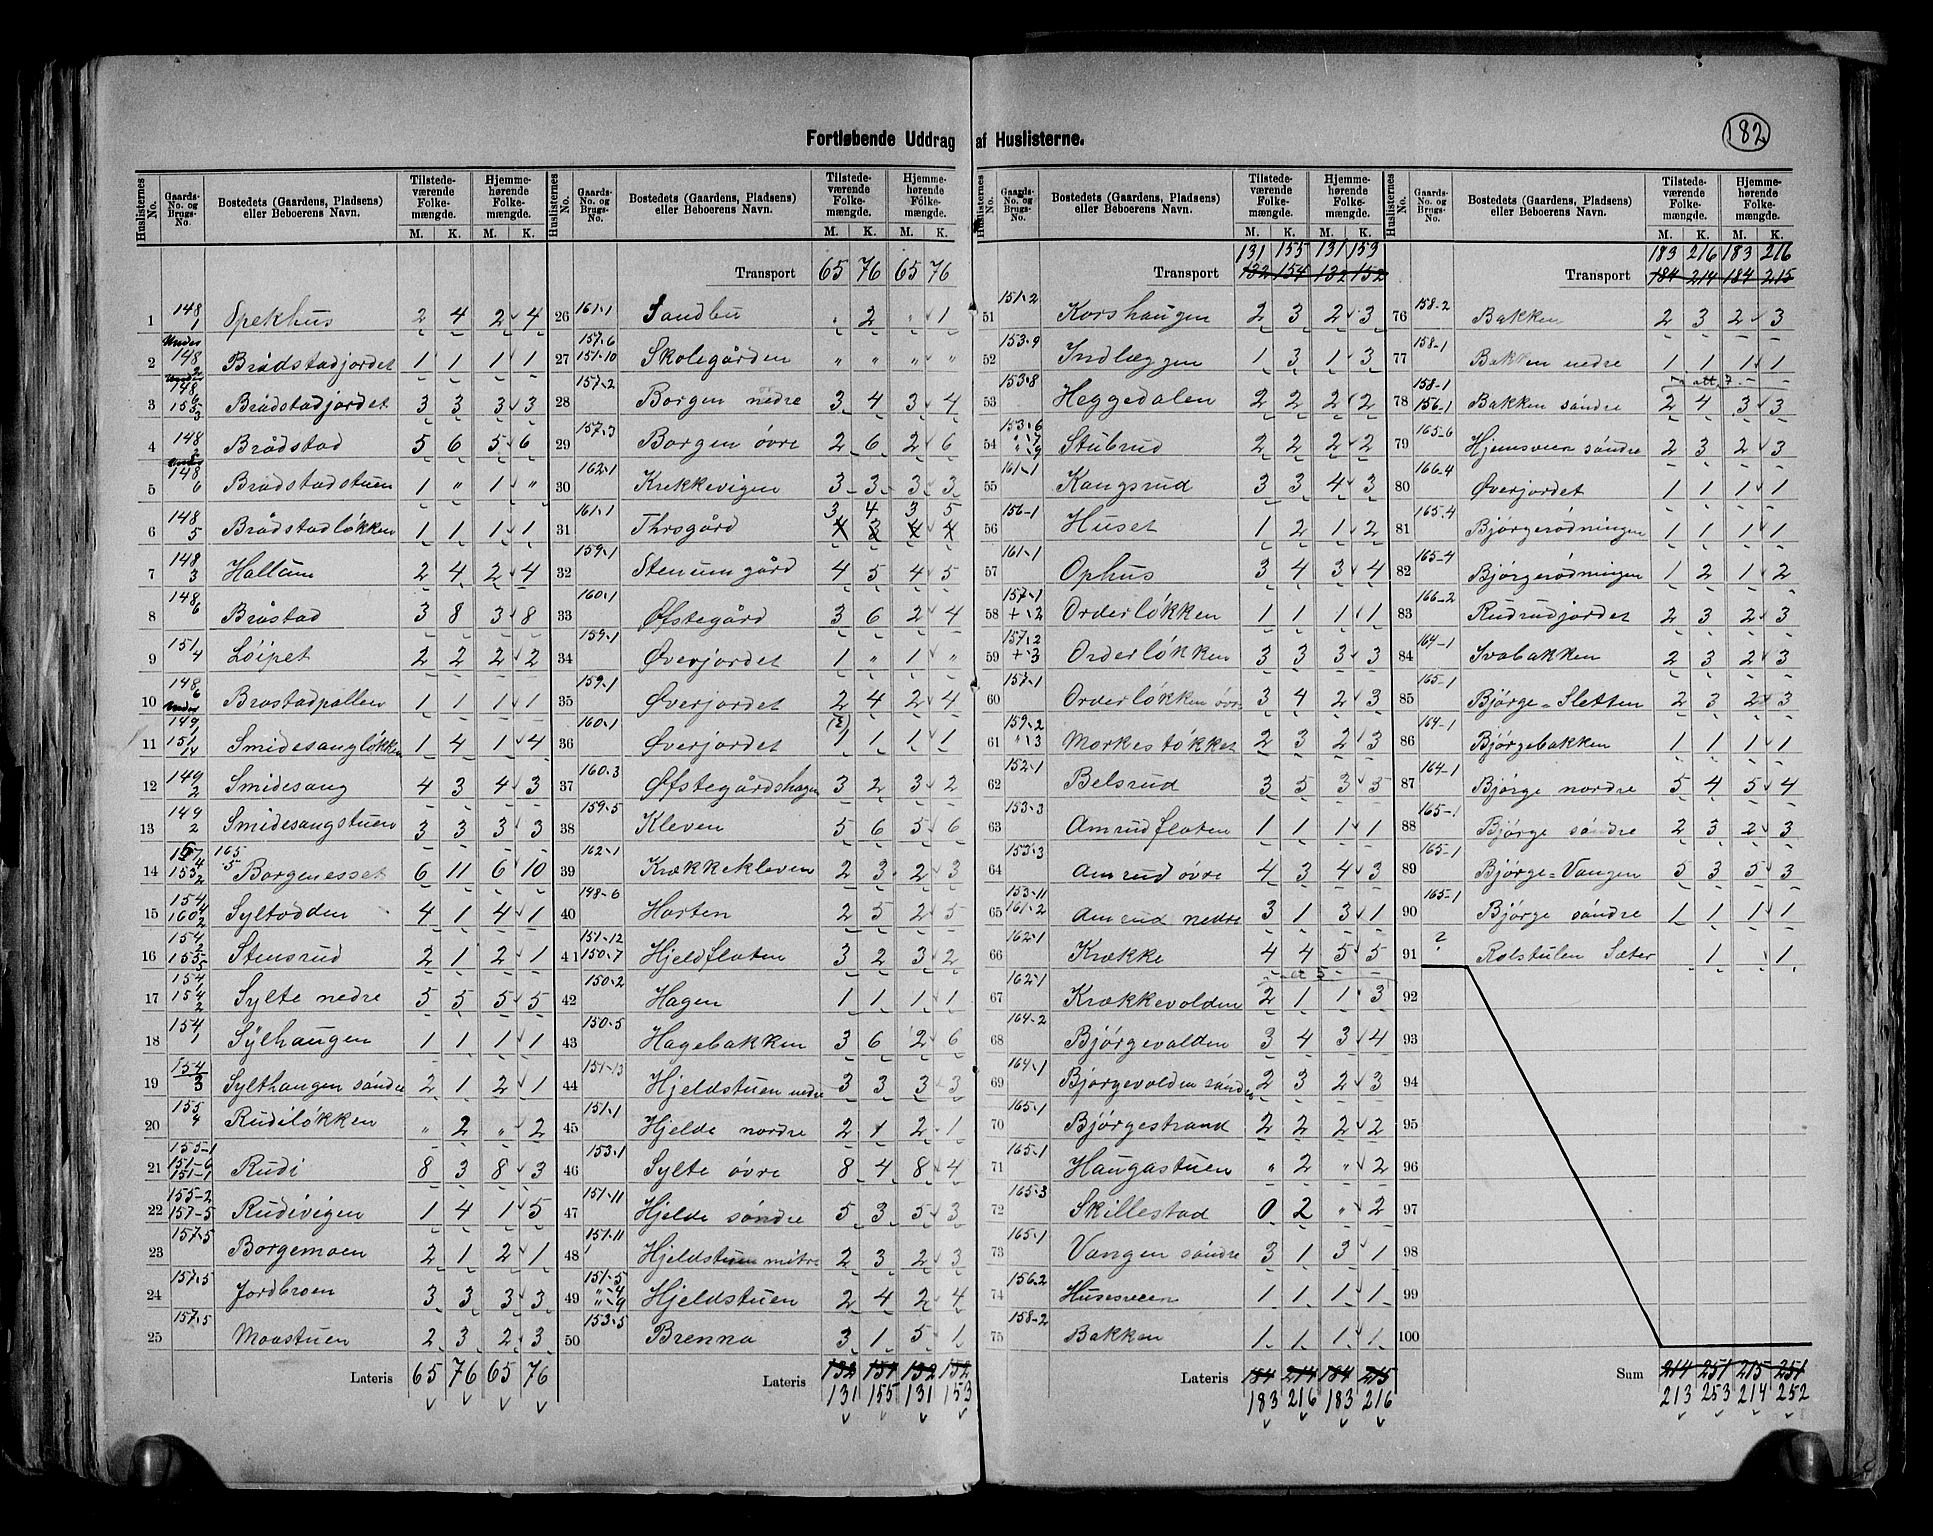 Fortløbende Uddrag af Huslisterne.
182
Huslisternes No. | Gaards-No. og Brugs-No. | Bostedets (Gaardens, Pladsens) eller Beboerens Navn. | Tilstedeværende Folkemængde. M. K. | Hjemmehørende Folkemængde. M. K.
1 148 1 Opekhus 2 4 2 4
2 Under 148 2 Brådstadjordet 1 1 1 1
3 Under 148 6 153 3 Brådstadjordet 3 3 3 3
4 148 2 Brådstad 5 6 5 6
5 Under 148 6 Brådstadstuen 1 " 1 "
6 148 5 Brådstadløkken 1 1 1 1
7 148 3 Hallum 2 4 2 4
8 148 6 Bråstad 3 8 3 8
9 151 4 Løipet 2 2 2 2
10 148 6 Bråstadpallen 1 1 1 1
11 Under 149 1 151 14 Smidesangløkken 1 4 1 4
12 149 2 Smidesang 4 3 4 3
13 149 2 Smidesangstuen 3 3 3 3
14 157 4 153 2 165 5 Borgenesset 6 11 6 10
15 154 4 160 2 Syltodden 4 1 4 1
16 154 2 155 5 Stensrud 2 1 2 1
17 154 1 154 2 Sylte nedre 5 5 5 5
18 154 1 Sylhaugen 1 1 1 1
19 154 3 Sylthaugen søndre 2 1 2 1
20 155 4 Rudiløkken " 2 " 2
21 155-1 151-6 151-7 Rudi 8 3 8 3
22 155-2 157-5 Rudivigen 1 4 1 5
23 157-5 Borgemoen 2 1 2 1
24 157-5 Jordbroen 3 3 3 3
25 157-5 Moastuen 2 3 2 3
Lateris 65 76 65 76
Huslisternes No. | Gaards-No. og Brugs-No. | Bostedets (Gaardens, Pladsens) eller Beboerens Navn. | Tilstedeværende Folkemængde. M. K. | Hjemmehørende Folkemængde. M. K.
Transport 65 76 65 76
26 161-1 Sandbu " 2 " 1
27 157-6 151-10 Skolegården " " " "
28 157-2 Borgen nedre 3 4 3 4
29 157-3 Borgen øvre 2 6 2 6
30 162-1 Krekkevigen 3 3 3 3
3 4 3 5
31 161-1 Thrsgård 4 3 4 4
32 159-1 Stenumgård 4 5 4 5
33 160-1 Øfstegård 3 6 2 4
34 159-1 Øverjordet 1 " 1 "
35 159-1 Øverjordet 2 4 2 4
36 160-1 Øverjordet 1 1 1 1
37 160-3 Øfstegårdshagen 3 2 3 2
38 159-5 Kleven 5 6 5 6
39 162-1 Krækkekleven 2 3 2 3
40 148-6 Harten 2 5 2 5
41 151-12 150-7 Hjeldflaten 3 2 3 2
42 150-2 Hagen 1 1 1 1
43 150-5 Hagebakken 3 6 2 6
44 151-13 Hjeldstuen nedre 3 3 3 3
45 151-1 Hjelde nordre 2 1 2 1
46 153-1 Sylte øvre 8 4 8 4
47 151-11 Hjelde søndre 5 3 5 3
48 151-11 Hjeldstuen mitre 2 3 2 3
49 151-5 "-4 "-9 Hjeldstuen 2 4 2 4
50 153-5 Brenna 3 1 5 1
Lateris 132 154 132 152
131 155 131 153
Huslisternes No. | Gaards-No. og Brugs-No. | Bostedets (Gaardens, Pladsens) eller Beboerens Navn. | Tilstedeværende Folkemængde. M. K. | Hjemmehørende Folkemængde. M. K.
131 155 131 153
Transport 132 154 132 152
51 151-2 Korshaugen 2 3 2 3
52 153-9 Indlæggen 1 3 1 3
53 153-8 Heggedalen 2 2 2 2
54 153-6 "-7 "-9 Stubrud 2 2 2 2
55 161-1 Kongsrud 3 3 4 3
56 156-1 Huset 1 2 1 2
57 161-1 Ophus 3 4 3 4
58 157-1 +-2 Orderløkken 1 1 1 1
59 157-2 +-3 Orderløkken 3 3 3 3
60 157-1 Orderløkken øvr 3 4 2 3
61 159-2 "-3 Morkestøkket 2 3 2 3
62 152-1 Belsrud 3 5 3 5
63 153-3 Amrudflaten 1 1 1 1
64 153-3 Amrud øvre 4 3 4 3
65 153-11 161-2 Amrud nedre 3 1 3 1
66 162-1 Krække 4 4 5 5
67 162-1 Krækkevolden 2 1 1 3
68 164-2 Bjørgevolden 3 4 3 4
69 164-1 Bjørgevolden søndre 2 3 2 3
70 165-1 Bjørgestrand 2 2 2 2
71 165-1 Haugastuen " 2 " 2
72 165-3 Skillestad 0 2 " 2
73 165-1 Vangen søndre 3 1 3 1
74 156-2 Husesveen 1 1 1 1
75 158-2 Bakken 1 1 1 1
Lateris 184 214 184 215
183 216 183 216
Huslisternes No. | Gaards-No. og Brugs-No. | Bostedets (Gaardens, Pladsens) eller Beboerens Navn. | Tilstedeværende Folkemængde. M. K. | Hjemmehørende Folkemængde. M. K.
183 216 183 216
Transport 184 214 184 215
76 158-2 Bakken 2 3 2 3
77 158-1 Bakken nedre 1 1 1 1
78 158-1 156-1 Bakken søndre 2 4 3 3
79 165-6 Hjemsveen søndre 2 3 2 3
80 166-4 Øverjordet 1 1 1 1
81 165-4 Bjørgerødningen 1 1 1 1
82 165-4 Bjørgerødningen 1 2 1 2
83 166-2 Rudrudjordet 2 3 2 3
84 164-1 Svabakken 2 3 2 3
85 165-1 Bjørge-Sletten 2 3 2 3
86 164-1 Bjørgebakken 1 1 1 1
87 164-1 Bjørge nordre 5 4 5 4
88 165-1 Bjørge søndre 2 3 2 3
89 165-1 Bjørge-Vangen 5 3 5 3
90 165-1 Bjørge søndre 1 1 1 1
91 ? Rolstulen Sæter 1 1
92
93
94
95
96
97
98
99
100
Sum 214 251 215 251
213 253 214 252